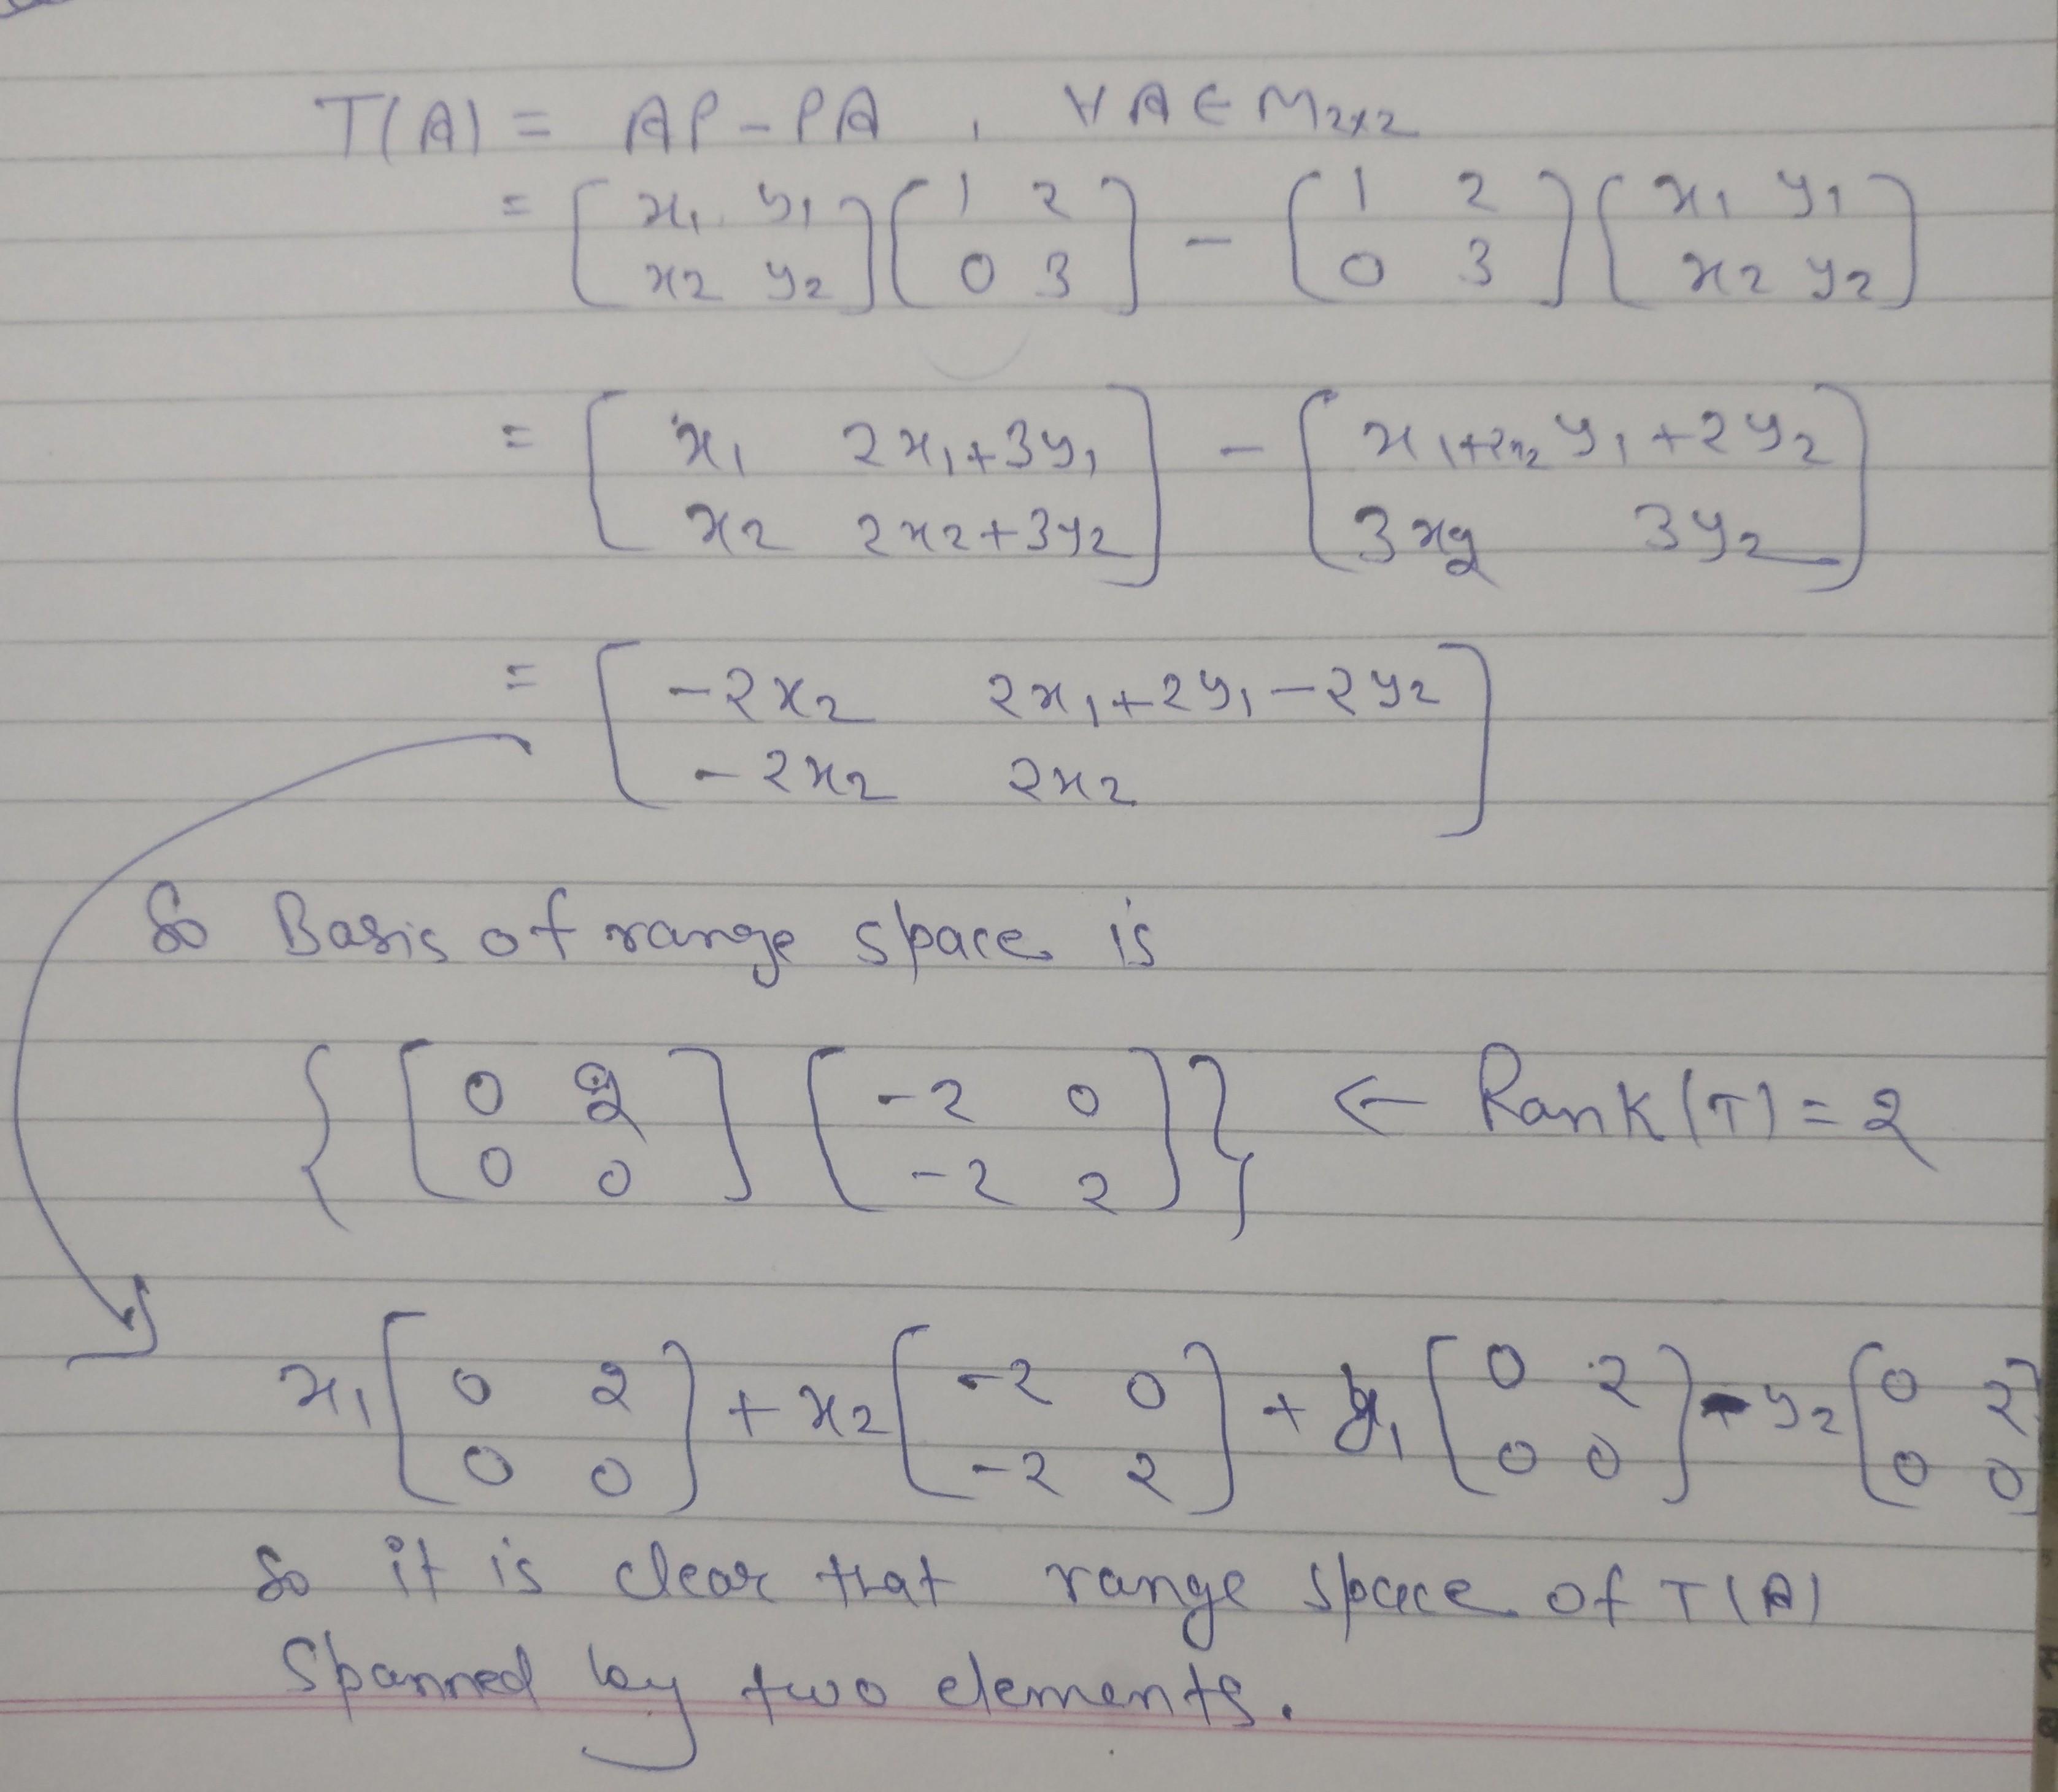 T(A) = AP - PA , ∀ A ∈ M2x2
= [ x1 y1 ; x2 y2 ] [ 1 2 ; 0 3 ] - [ 1 2 ; 0 3 ] [ x1 y1 ; x2 y2 ]
= [ x1 2x1+3y1 ; x2 2x2+3y2 ] - [ x1+2x2 y1+2y2 ; 3x2 3y2 ]
= [ -2x2 2x1+2y1-2y2 ; -2x2 2x2 ]
So Basis of range space is
{ [ 0 2 ; 0 0 ] [ -2 0 ; -2 2 ] } ← Rank(T) = 2
x1 [ 0 2 ; 0 0 ] + x2 [ -2 0 ; -2 2 ] + y1 [ 0 2 ; 0 0 ] - y2 [ 0 2 ; 0 0 ]
So it is clear that range space of T(A)
Spanned by two elements.